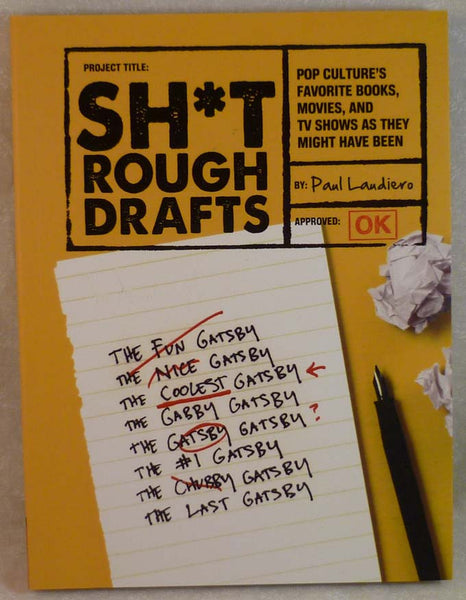 PROJECT TITLE:
SH*T
ROUGH
DRAFTS
POP CULTURE'S
FAVORITE BOOKS,
MOVIES, AND
TV SHOWS AS THEY
MIGHT HAVE BEEN
BY: Paul Laudiero
APPROVED: OK
THE FUN GATSBY
THE NICE GATSBY
THE COOLEST GATSBY ←
THE GABBY GATSBY
THE GATSBY GATSBY ?
THE #1 GATSBY
THE CHUBBY GATSBY
THE LAST GATSBY